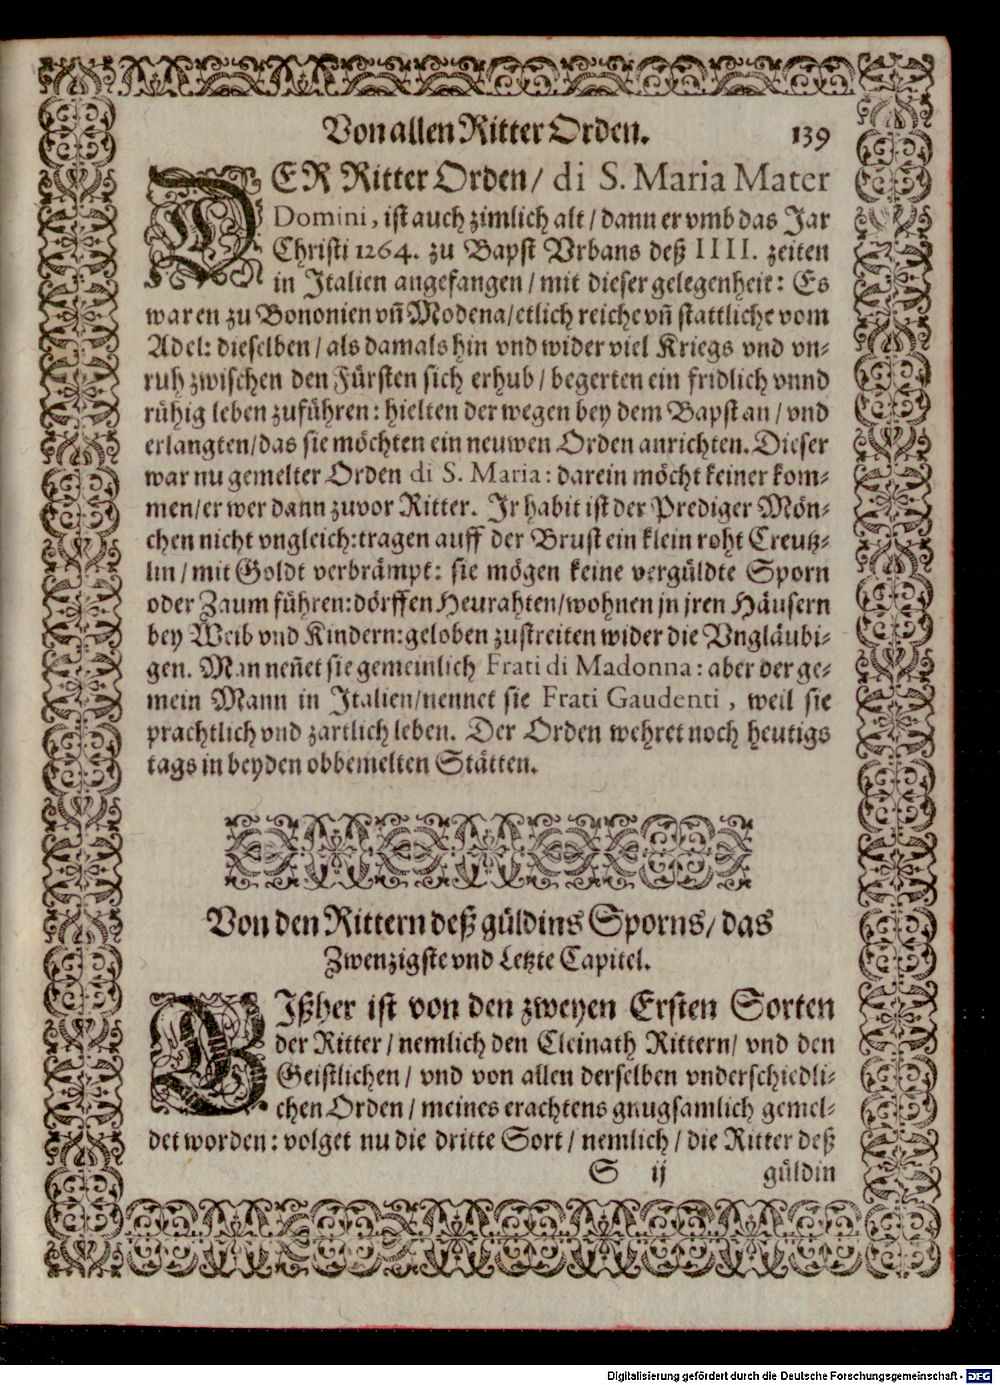 Von allen Ritter Orden. 139
DER Ritter Orden / di S. Maria Mater
Domini, ist auch zimlich alt / dann er vmb das Jar
Christi 1264. zu Bapst Vrbans deß IIII. zeiten
in Italien angefangen / mit dieser gelegenheit: Es
waren zu Bononien vñ Modena / etlich reiche vñ stattliche vom
Adel: dieselben / als damals hin vnd wider viel Kriegs vnd vn-
ruh zwischen den Fürsten sich erhub / begerten ein fridlich vnnd
rühig leben zuführen: hielten derwegen bey dem Bapst an / vnd
erlangten / das sie möchten ein neuwen Orden anrichten. Dieser
war nu gemelter Orden di S. Maria: darein möcht keiner kom-
men / er wer dann zuvor Ritter. Ir habit ist der Prediger Mön-
chen nicht vngleich: tragen auff der Brust ein klein roht Creutz-
lin / mit Goldt verbrämpt: sie mögen keine vergüldte Sporn
oder Zaum führen: dörffen Heurahten / wohnen jn jren Häusern
bey Weib vnd Kindern: geloben zustreiten wider die Vngläubi-
gen. Man neñet sie gemeinlich Frati di Madonna: aber der ge-
mein Mann in Italien / nennet sie Frati Gaudenti, weil sie
prachtlich vnd zartlich leben. Der Orden wehret noch heutigs
tags in beyden obbemelten Stätten.
Von den Rittern deß güldins Sporns / das
Zwenzigste vnd Letzte Capitel.
BIßher ist von den zweyen Ersten Sorten
der Ritter / nemlich den Cleinath Rittern / vnd den
Geistlichen / vnd von allen derselben vnderschiedli-
chen Orden / meines erachtens gnugsamlich gemel-
det worden: volget nu die dritte Sort / nemlich / die Ritter deß
S ij güldin
Digitalisierung gefördert durch die Deutsche Forschungsgemeinschaft - DFG